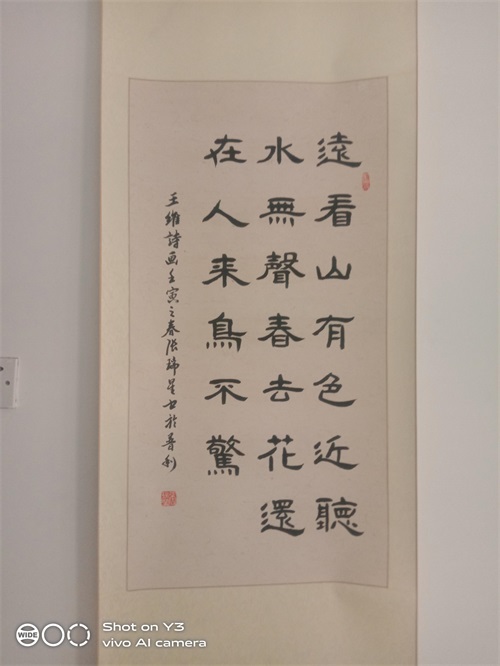 遠看山有色近聽
水無聲春去花還
在人来鳥不驚
王維詩画壬寅之春張瑞星書於普利
Shot on Y3
vivo AI camera
WIDE